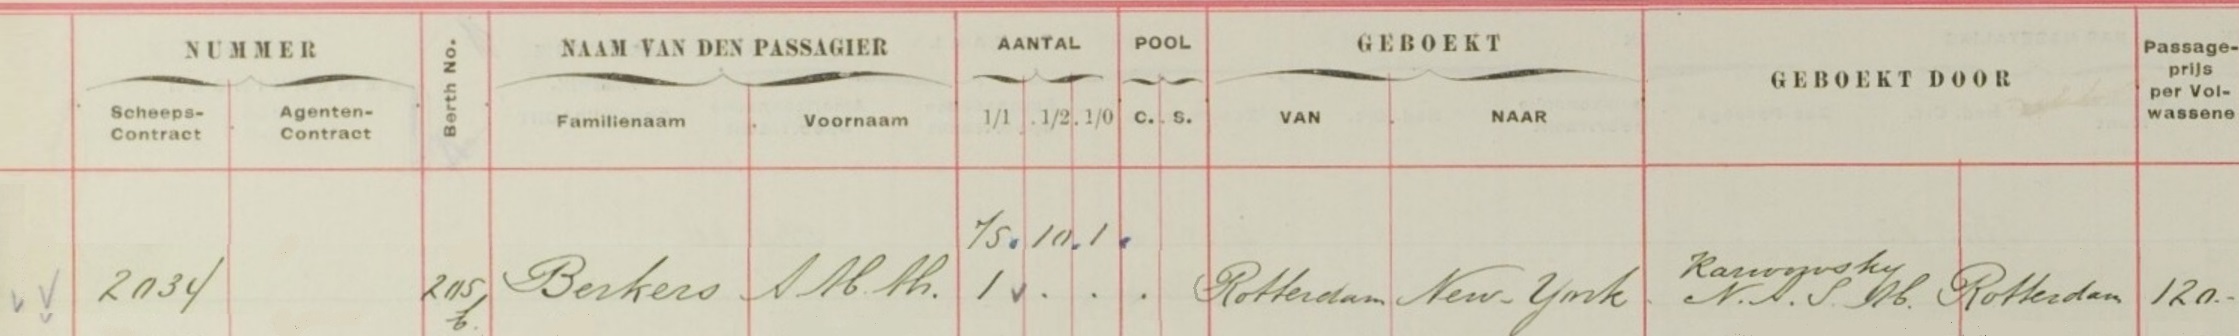 NUMMER Berth No. NAAM VAN DEN PASSAGIER AANTAL POOL GEBOEKT GEBOEKT DOOR Passage-
prijs
per Vol-
wassene
Scheeps-
Contract Agenten-
Contract Familienaam Voornaam 1/1 1/2 1/0 C. S. VAN NAAR
75. 10. 1.
Karwowsky
2034 205 Berkers A. M. Th. 1 Rotterdam New-York N.A.S.M. Rotterdam 120.-
b.